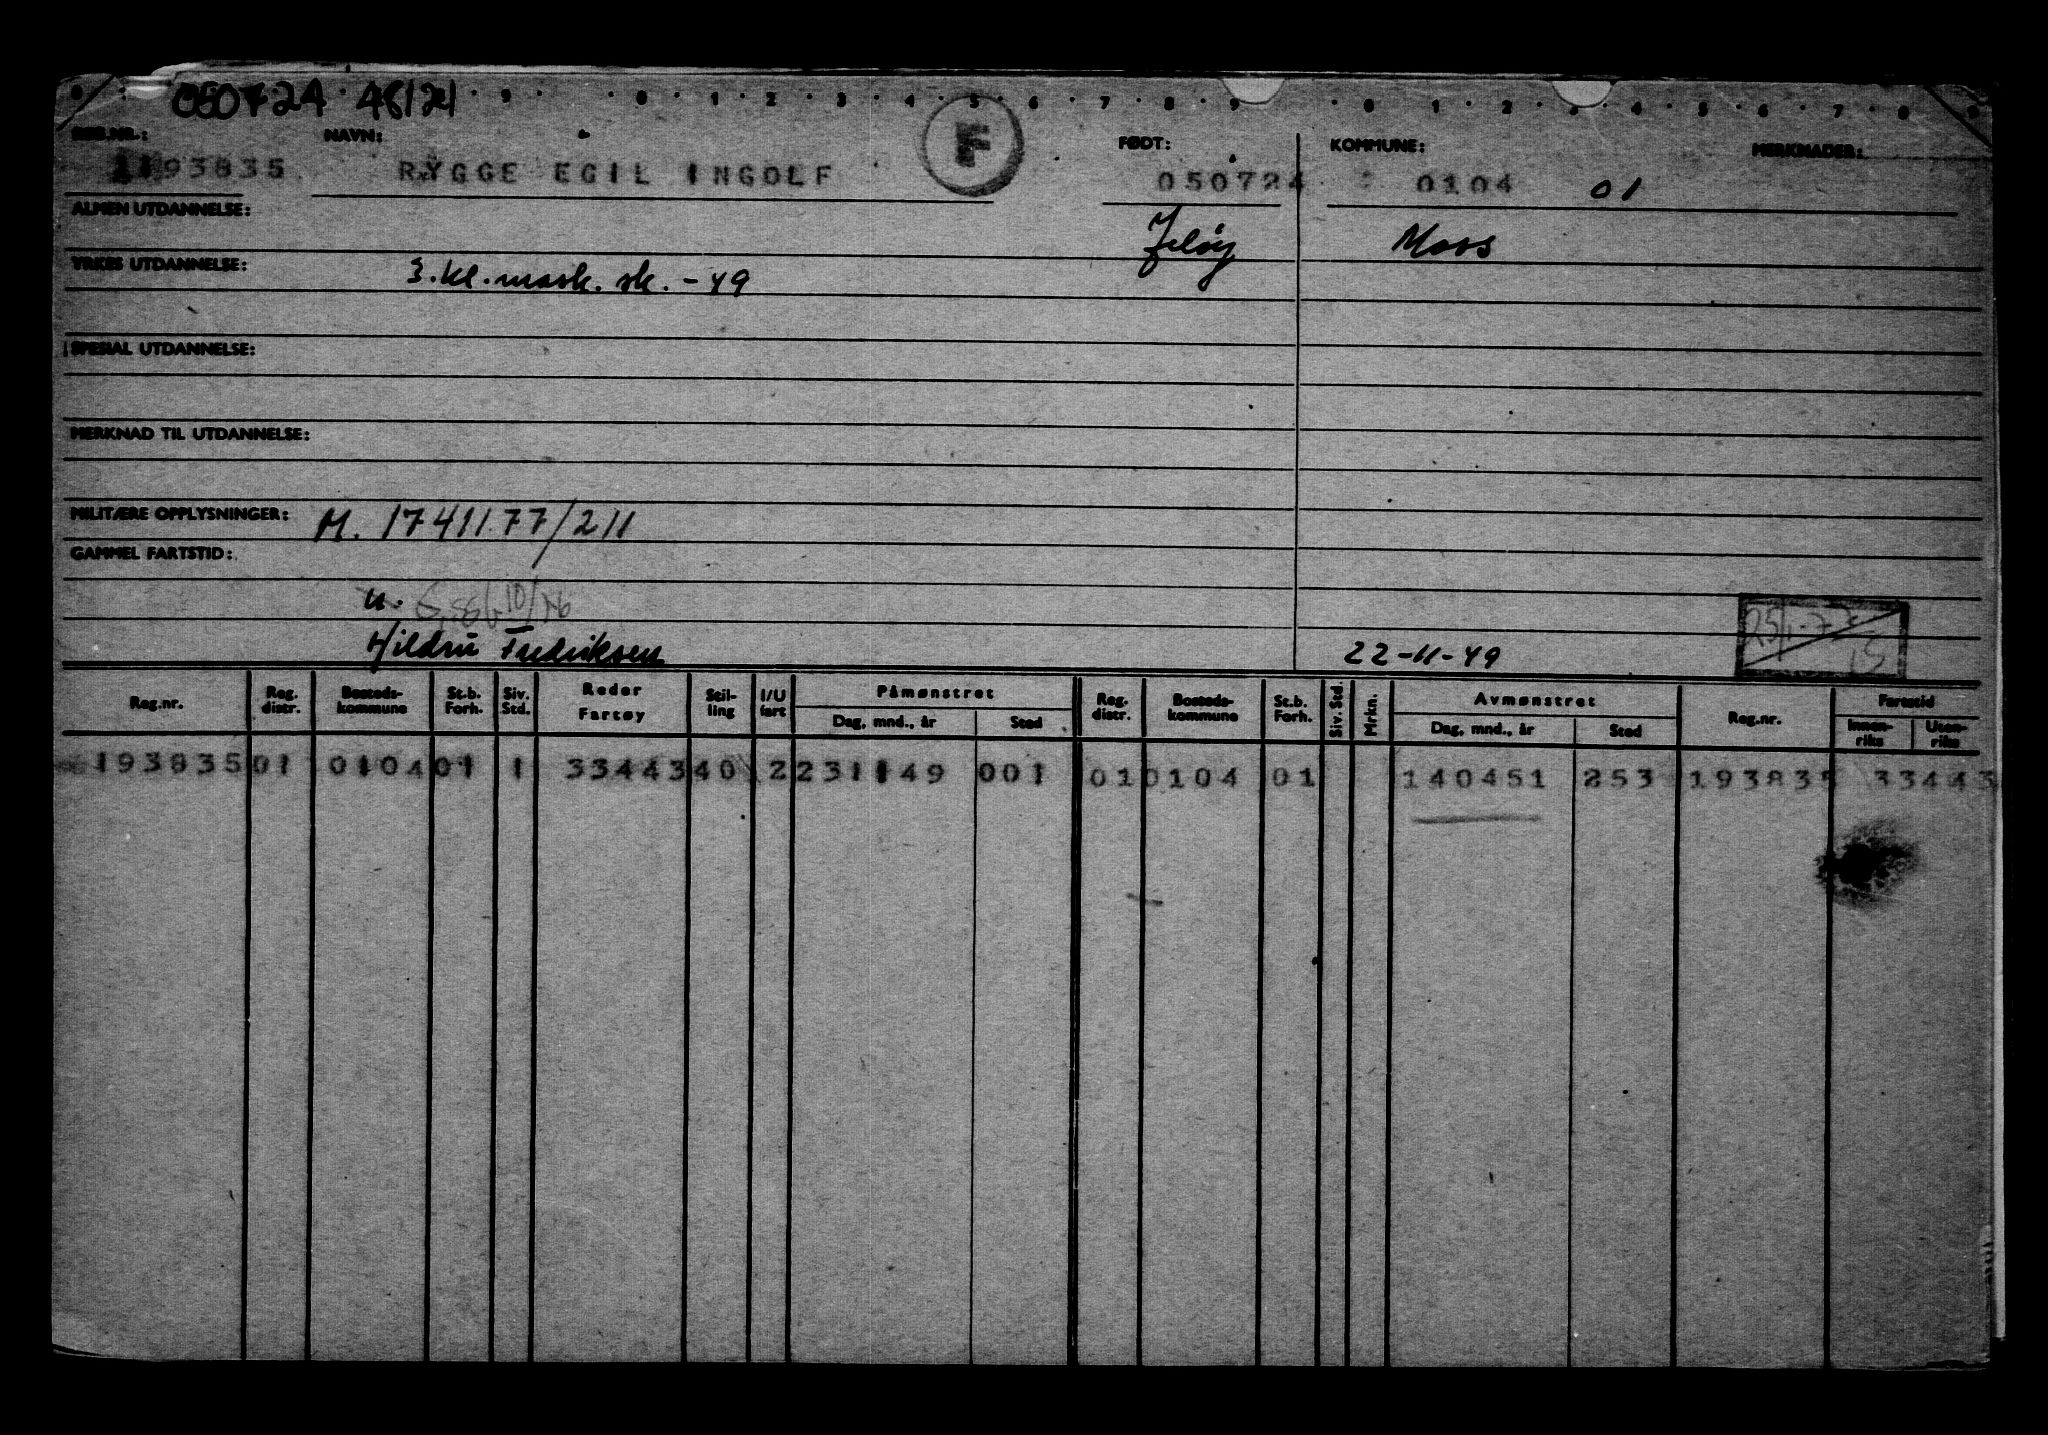 050724 48121
REG.NR.: NAVN: F FØDT: KOMMUNE: MERKNADER:
193835 RYGGE EGIL INGOLF 050724 0104 01
ALMEN UTDANNELSE: Jeløy Moss
YRKES UTDANNELSE: 3.kl.mask.sk. - 49
SPESIAL UTDANNELSE:
MERKNAD TIL UTDANNELSE:
MILITÆRE OPPLYSNINGER: M. 1741177/211
GAMMEL FARTSTID:
u.
Hildru Fredriksen 22-11-49
Reg.nr. Reg. distr. Bosteds-kommune St.b. Forh. Siv. Std. Reder Fartøy Stil-ling I/U fart Påmønstret Dag, mnd., år Sted Reg. distr. Bosteds-kommune St.b. Forh. Siv. Std. Mrkn. Avmønstret Dag, mnd., år Sted Reg.nr. Fartstid Innen-riks Uten-riks
193835 01 0104 01 1 33443 40 2 231149 001 01 0104 01 140451 253 193835 33443